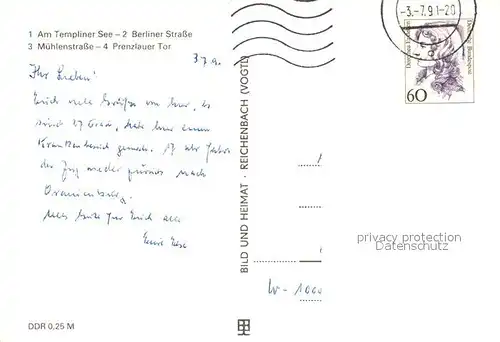 1 Am Templiner See – 2 Berliner Straße
3 Mühlenstraße – 4 Prenzlauer Tor
-3.-7.91-20
Deutsche Bundespost
60
3.7.91
Ihr Lieben!
Euch viele Grüße von hier, es
sind 27 Grad, habe hier einen
Krankenbesuch gemacht. 17 Uhr
der Zug wieder zurück nach
Oranienburg.
Alles Gute für Euch alle
Eure
BILD UND HEIMAT · REICHENBACH (VOGTL
W-1000
privacy protection
VEREINSMEISTER.de
DDR 0,25 M